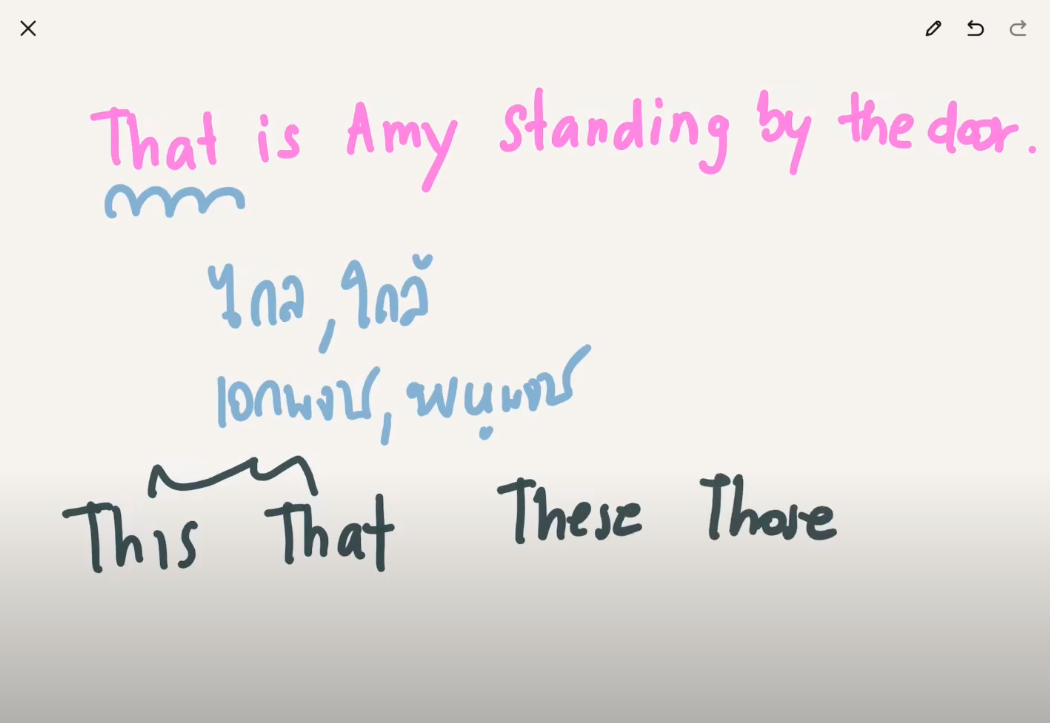 That is Amy standing by the door.
ไกล, ใกล้
เอกพจน์, พหูพจน์
This That These Those